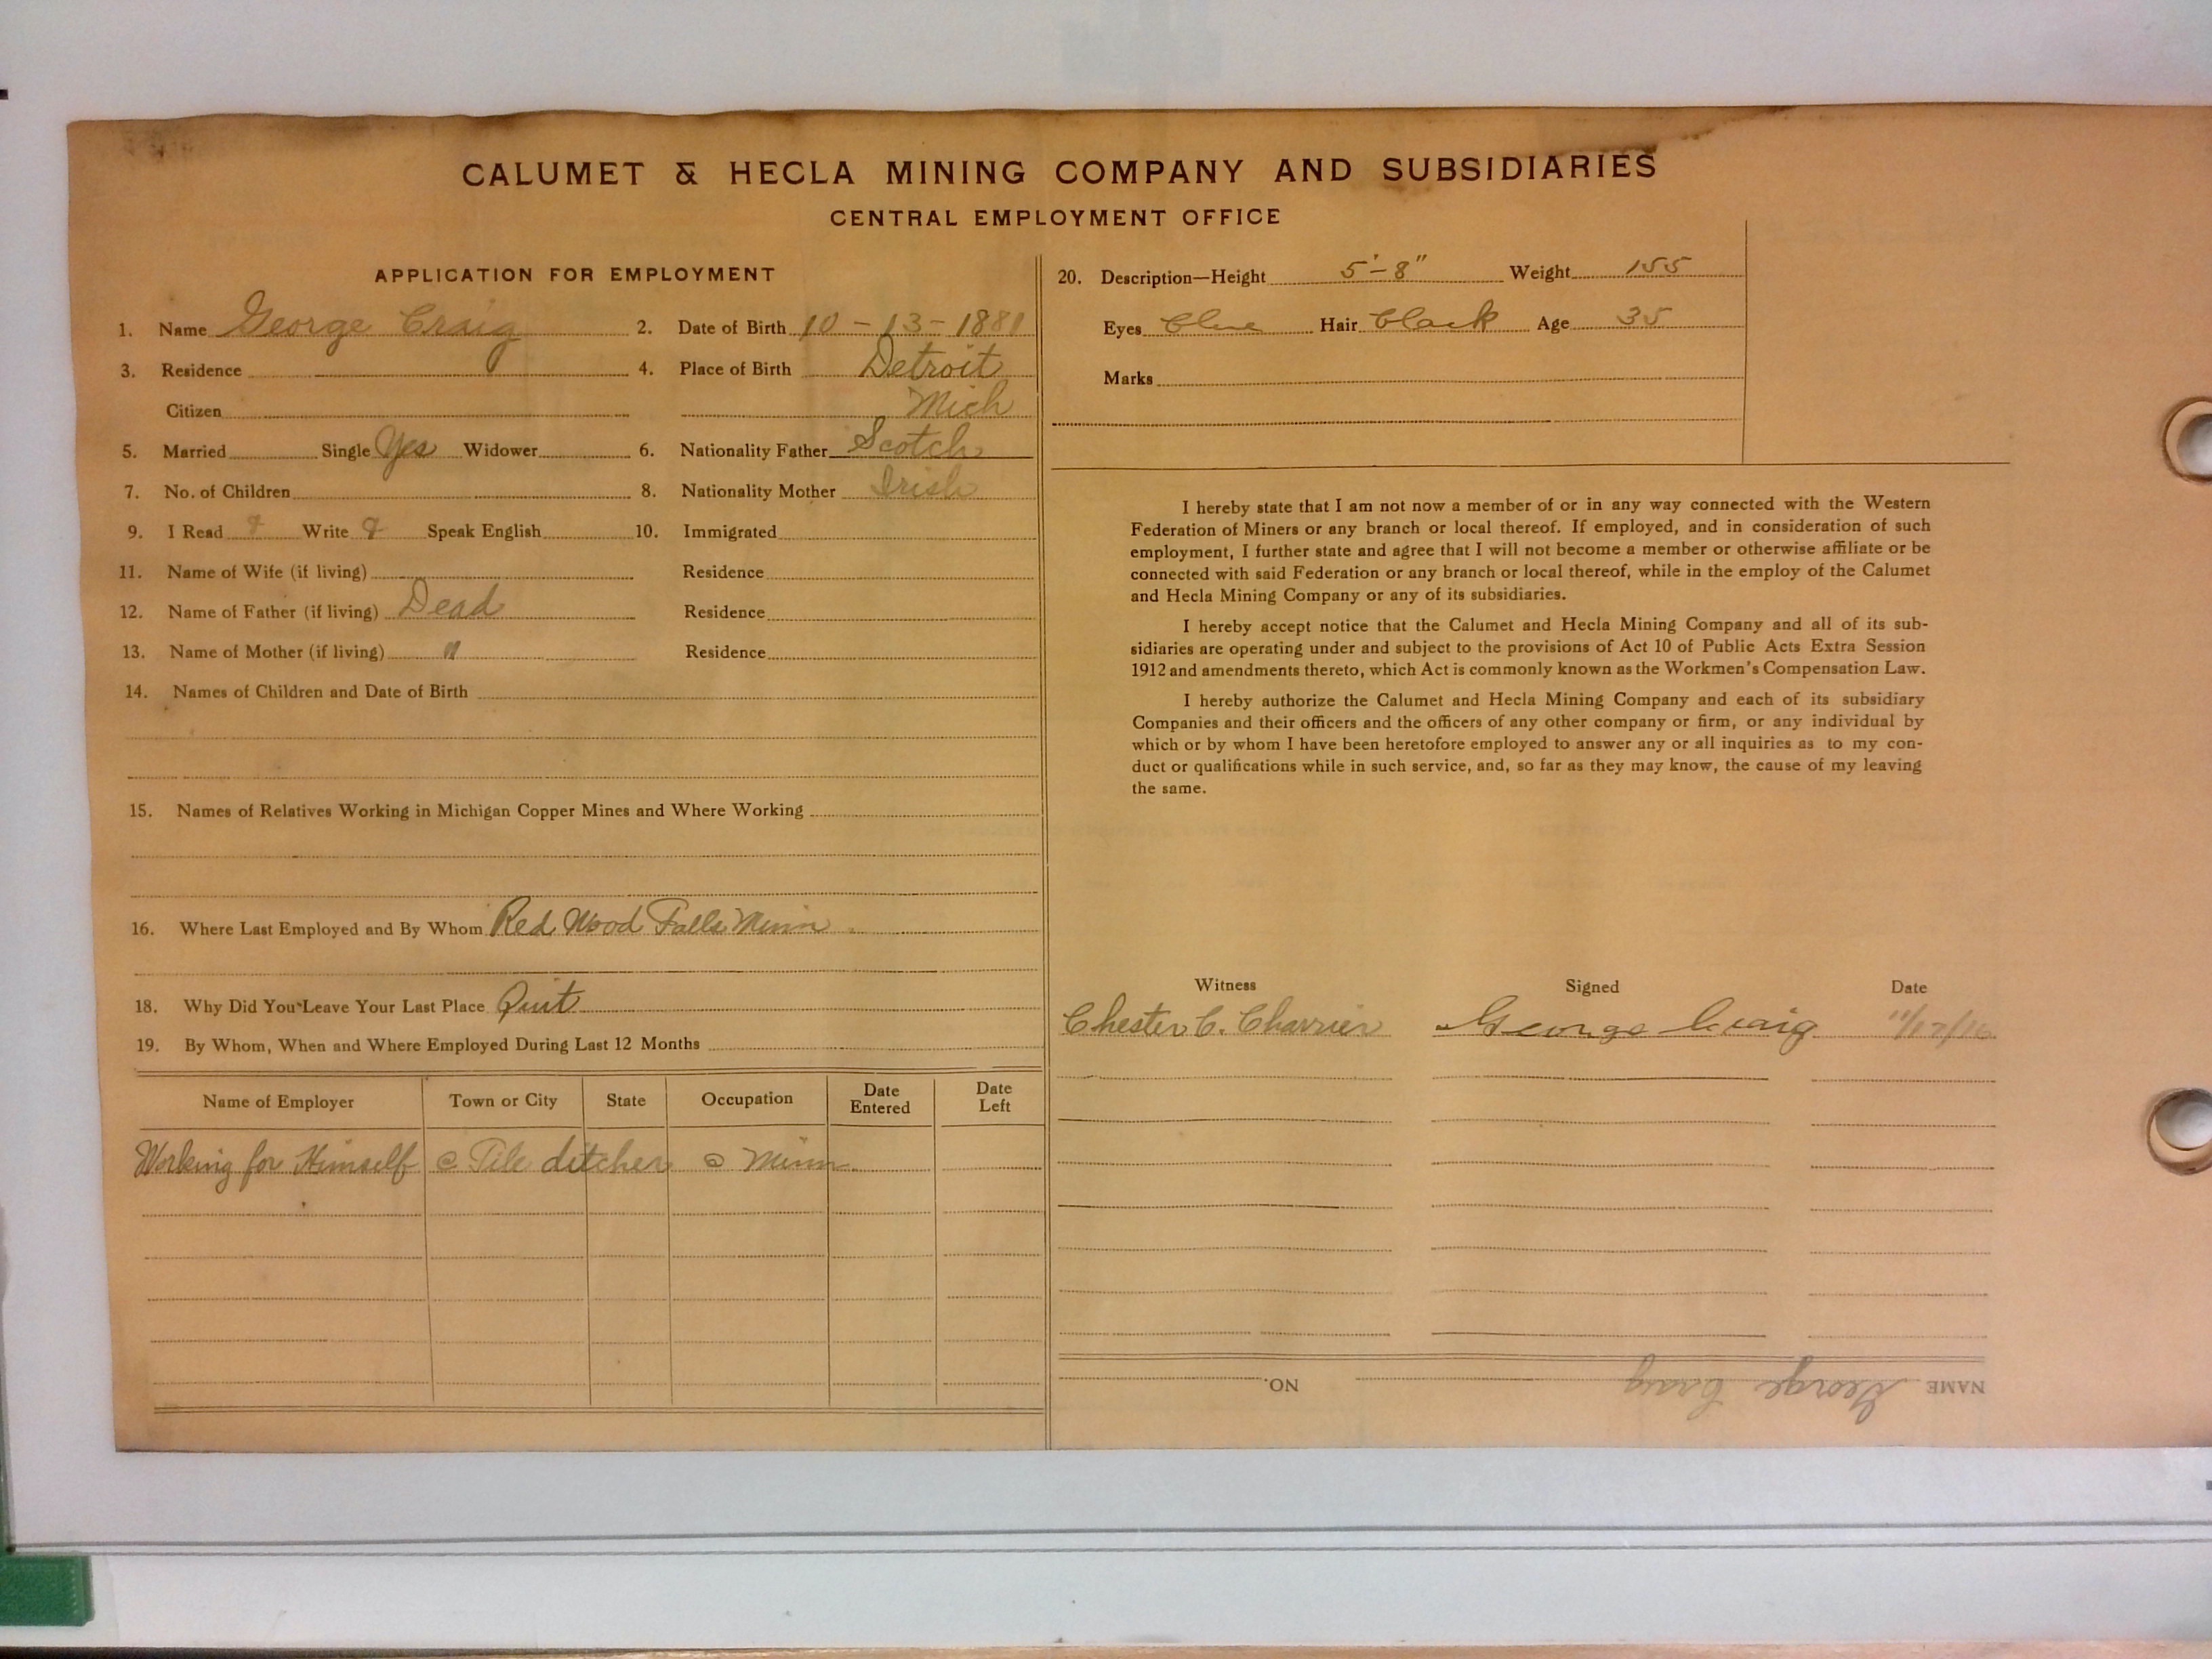 CALUMET & HECLA MINING COMPANY AND SUBSIDIARIES
CENTRAL EMPLOYMENT OFFICE
APPLICATION FOR EMPLOYMENT
1. Name George Craig 2. Date of Birth 10-13-1881
3. Residence 4. Place of Birth Detroit
Citizen Mich
5. Married Single Yes Widower 6. Nationality Father Scotch
7. No. of Children 8. Nationality Mother Irish
9. I Read Write Speak English 10. Immigrated
11. Name of Wife (if living) Residence
12. Name of Father (if living) Dead Residence
13. Name of Mother (if living) " Residence
14. Names of Children and Date of Birth
15. Names of Relatives Working in Michigan Copper Mines and Where Working
16. Where Last Employed and By Whom Red Wood Falls Minn
18. Why Did You Leave Your Last Place Quit
19. By Whom, When and Where Employed During Last 12 Months
Name of Employer Town or City State Occupation Date Entered Date Left
Working for Himself @ Tile ditcher @ Minn.
20. Description—Height 5'-8" Weight 155
Eyes Blue Hair Black Age 35
Marks
I hereby state that I am not now a member of or in any way connected with the Western
Federation of Miners or any branch or local thereof. If employed, and in consideration of such
employment, I further state and agree that I will not become a member or otherwise affiliate or be
connected with said Federation or any branch or local thereof, while in the employ of the Calumet
and Hecla Mining Company or any of its subsidiaries.
I hereby accept notice that the Calumet and Hecla Mining Company and all of its sub-
sidiaries are operating under and subject to the provisions of Act 10 of Public Acts Extra Session
1912 and amendments thereto, which Act is commonly known as the Workmen's Compensation Law.
I hereby authorize the Calumet and Hecla Mining Company and each of its subsidiary
Companies and their officers and the officers of any other company or firm, or any individual by
which or by whom I have been heretofore employed to answer any or all inquiries as to my con-
duct or qualifications while in such service, and, so far as they may know, the cause of my leaving
the same.
Witness Signed Date
Chester C. Charrier George Craig
NAME George Craig NO.